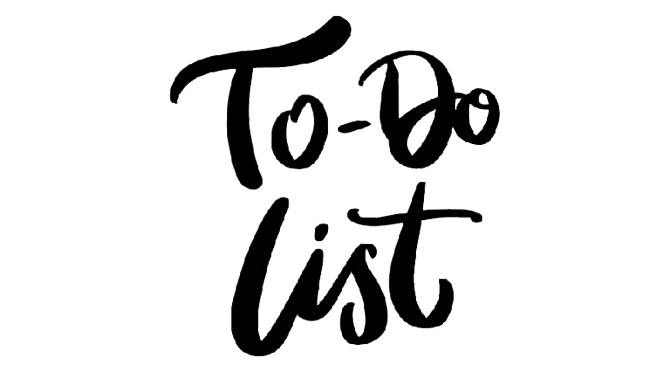 To-Do
list